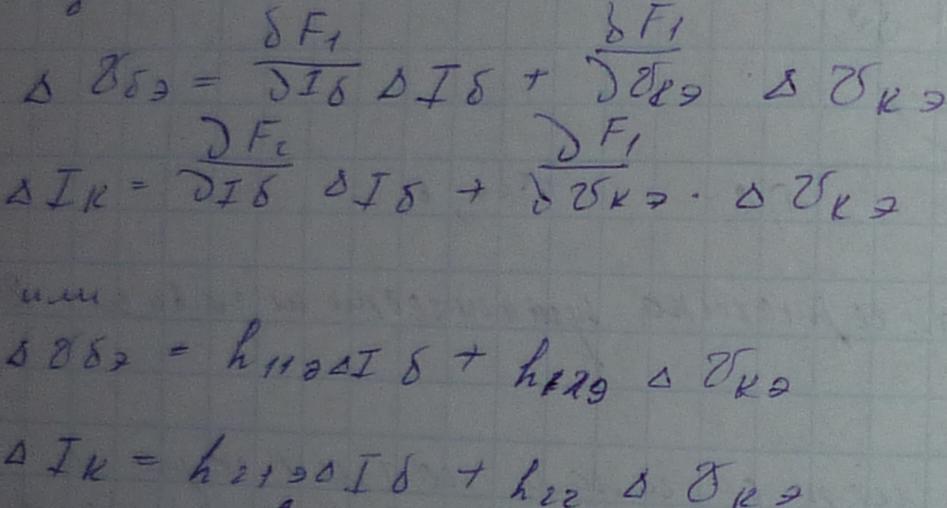 Δ Uбэ = ∂F₁/∂Iб ΔIб + ∂F₁/∂Uкэ Δ Uкэ
ΔIк = ∂F₂/∂Iб ΔIб + ∂F₁/∂Uкэ · Δ Uкэ
или
ΔUбэ = h₁₁эΔIб + h₁₂э Δ Uкэ
ΔIк = h₂₁эΔIб + h₂₂ Δ Uкэ